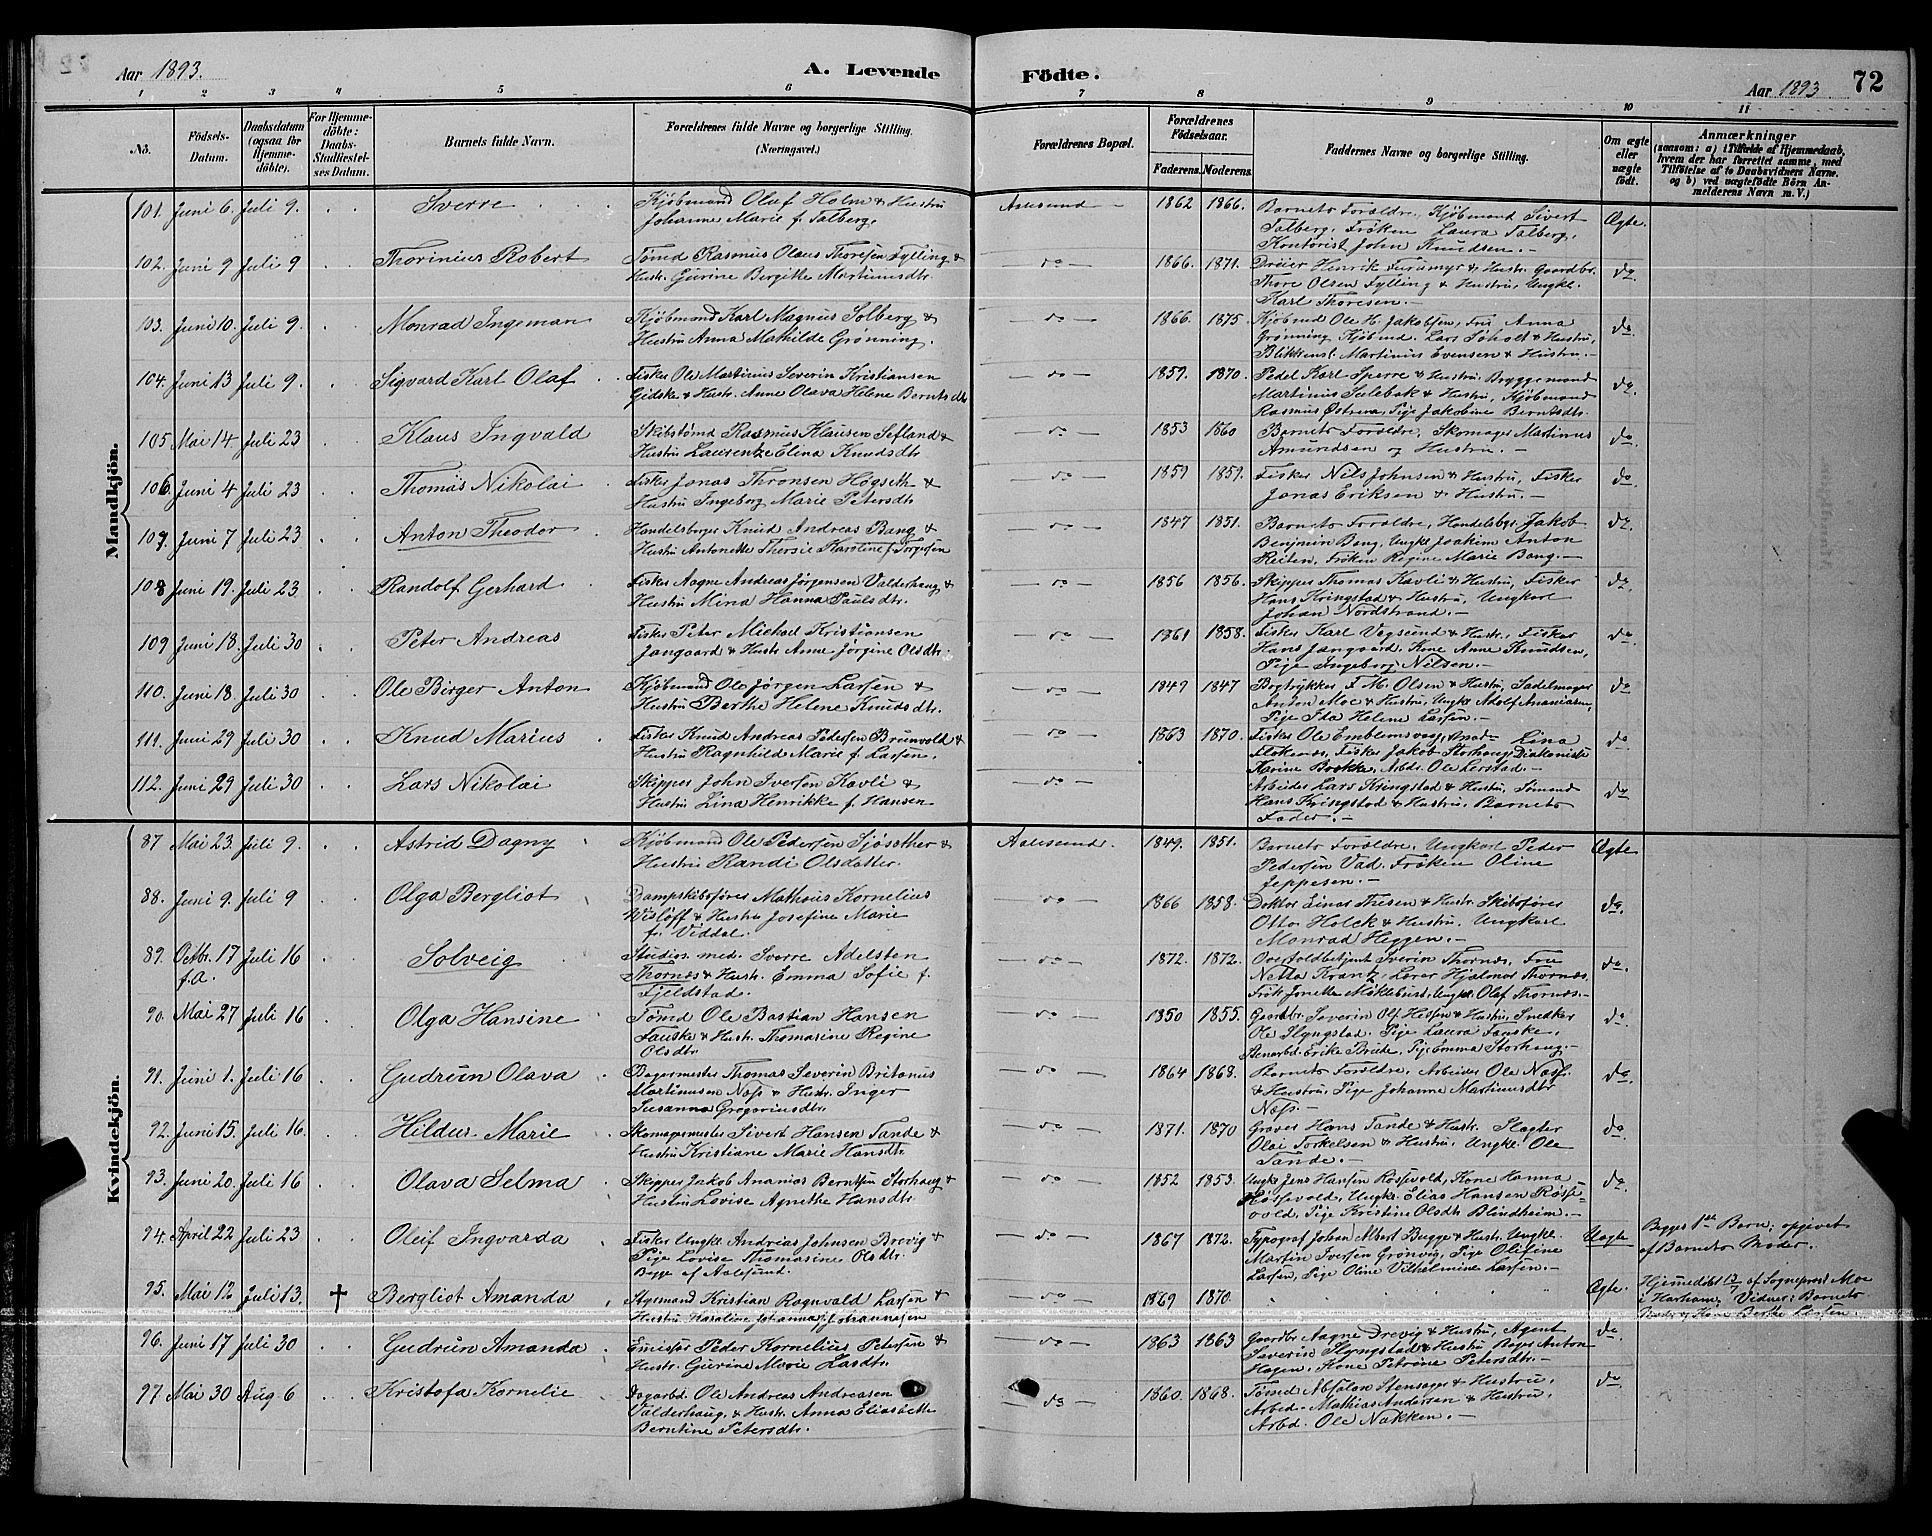 Aar 1893. A. Levende Födte. Aar 1893 72
1 2 3 4 5 6 7 8 9 10 11
No.
Födsels-Datum.
Daabsdatum (ogsaa for Hjemme-döbte).
For Hjemme-döbte: Daabs-Stadfæstel-ses Datum.
Barnets fulde Navn.
Forældrenes fulde Navne og borgerlige Stilling. (Næringsvei.)
Forældrenes Bopæl.
Forældrenes Födselsaar.
Faderens. Moderens.
Faddernes Navne og borgerlige Stilling.
Om ægte eller uægte födt.
Anmærkninger
(saasom: a) i Tilfælde af Hjemmedaab, hvem der har forrettet samme, med Tilföielse af to Daabsvidners Navne, og b) ved uægtefödte Börn Anmelderens Navn m. V.)
Mandkjön.
101. Juni 6. Juli 9. Sverre Kjöbmand Olaf Holm & Hustru Aalesund 1862 1866. Barnets Forældre, Kjöbmand Sivert Ægte.
Johanne Marie f. Talberg. Talberg, Fröken Laura Talberg,
Kontorist John Knudsen.
102. Juni 9 Juli 9 Thorinius Robert Tömd Rasmus Olaus Thoresen Fylling & do 1866. 1871. Dreier Henrik Furumyr & Hustru, Gaardbr. do
Hustr. Gurine Bergithe Martinusdtr. Thore Olsen Fylling & Hustru, Ungk.
Karl Thoresen.
103. Juni 10. Juli 9. Monrad Ingeman Kjöbmand Karl Magnus Solberg & do 1866. 1875 Kjöbmd Ole H. Jakobsen, Frü Anna do
Hustru Anna Mathilde Grönning. Grönning, Kjöbmd. Lars Söholt & Hustru,
Blikkensl. Martinus Evensen & Hustru.
104. Juni 13 Juli 9. Sigvard Karl Olaf Fisker Ole Martinus Severin Kristiansen do 1859. 1870. Pedel Karl Sperre & Hustru, Bryggemand do
Gidske & Hustr. Anne Olava Helene Berntsdtr Martinus Sulebak & Hustru, Kjöbmand
Rasmus Östrem, Pige Jakobine Berntsdtr.
105 Mai 14 Juli 23 Klaus Ingvald Skibstömd Rasmus Klausen Sefland & do 1853 1860 Barnets Forældre, Skomager Martinus do
Hustru Laurentze Elina Knudsdtr Amundsen og Hustru.
106. Juni 4 Juli 23 Thomas Nikolai Fisker Jonas Thronsen Högseth & do 1859 1859. Fisker Nils Johnsen & Hustru, Fisker do
Hustru Ingeborg Marie Petersdtr Jonas Eriksen & Hustru.
107. Juni 7 Juli 23 Anton Theodor Handelsborger Knud Andreas Bang & do 1847 1851. Barnets Forældre, Handelsbgr Jakob do
Hustru Antonette Thersie Karoline f. Torgersen Benjamin Bang, Ungk Joakim Anton
Reiten, Fröken Regine Marie Bang.
108 Juni 19. Juli 23. Randolf Gerhard Fisker Aagne Andreas Jörgensen Valderhaug & do 1856 1856. Skipper Thomas Kavli & Hustru, Fisker do
Hustru Mina Hanna Paulsdtr. Hans Kringstad & Hustru, Ungkarl
Johan Nordstrand.
109 Juni 18. Juli 30 Peter Andreas Fisker Peter Michael Kristiansen do 1861 1858. Fisker Karl Vegsund & Hustr., Fisker do
Jangaard & Hustr. Anne Jörgine Olsdtr. Hans Jangaard, Kone Anne Knudsen,
Pige Ingeborg Nilsen.
110. Juni 18. Juli 30 Ole Birger Anton Kjöbmand Ole Jörgen Larsen & do 1849 1847 Bogtrykker F. M. Olsen & Hustru, Sadelmager do
Hustru Berthe Helene Knudsdtr. Anton Moe & Hustru, Ungk Adolf Ananiasen,
Pige Ida Helene Larsen.
111. Juni 29 Juli 30 Knud Marius Fisker Knud Andreas Pedersen Brunvold & do 1863 1870. Fisker Ole Emblemsvaag, Lina do
Hustru Ragnhilde Marie f. Larsen. Flokenes, Fisker Jakob Storhaug, Diakonisse
Karine Brokke, Arbdr. Ole Lerstad.
112. Juni 29 Juli 30 Lars Nikolai Skipper John Iversen Kavli & do Arbeider Lars Kringstad & Hustru, Tömmd do
Hustru Lina Henrikke f. Hansen Hans Kringstad & Hustru, Barnets
Fader.
Kvindekjön.
87 Mai 23. Juli 9. Astrid Dagny Kjöbmand Ole Pedersen Sjösæther & Aalesund. 1849. 1851. Barnets Forældre, Ungkarl Peder Ægte
Hustru Randi Olsdatter. Pedersen Vad. Fröken Oline
Jeppesen.
88. Juni 9. Juli 9 Olga Bergliot Dampskibsförer Mathæus Kornelius do 1866 1858. Doktor Einar Thesen & Hustr. Skibsförer do.
Wislöff & Hustru Josefine Marie Otto Holck & Hustru, Ungkarl
f. Viddal. Monrad Heggen.
89. Octbr. 17 Juli 16 Solveig Studios. med. Sverre Adelsten do 1872. 1872. Overtoldbetjent Sverin Thornæs, Fru do.
f.a. Thornæs & Hustr. Emma Sofie f. Netta Krantz, Lærer Hjalmar Thornæs,
Fjeldstad. Frök Jonetta Möklebust, Ungk. Olaf Thornæs.
90. Mai 27 Juli 16 Olga Hansine Tömd Ole Bastian Hansen do 1850 1855. Gaardbr. Severin Olf Hessen & Hustru, Snedker do
Fauske & Hustr. Thomasine Regine Ole Slyngstad. Pige Laura Fauske.
Olsdtr Stenarbd. Erike Brude, Pige Emma Storhaug.
91. Juni 1. Juli 16 Gudrun Olava Bagermester Thomas Severin Britanus do 1864 1868. Barnets Forældre, Arbeider Ole Næss do.
Martinusen Næss & Hustr. Inger & Hustru, Pige Johanne Martinusdtr
Susanna Gregoriusdtr. Næss.
92. Juni 15. Juli 16. Hildur Marie Skomagermester Sivert Hansen Tande & do 1871. 1870 Graver Hans Tande & Hustr. Slagter do
Hustru Kristiane Marie Hansdtr. Olai Torkelsen & Hustru, Ungk. Ole
Tande.
93. Juni 20. Juli 16 Olava Selma Skipper Jakob Ananias Berntsen Storhaug & do 1852 1853. Ungk Jens Hansen Rössevold, Kone Hanna do
Hustru Lovise Agnethe Hansdtr. Rössevold, Ungk. Elias Hansen Rösse-
vold, Pige Kristine Olsdtr Blindheim.
94. April 22 Juli 23 Oleif Ingvarda Fisker Ungk. Andreas Johnsen Brevig & do 1867 1872. Typograf Johan Albert Bugge & Hustr. Ungk. Uægte Begges 1ste Barn; opgivet
Pige Lovise Thomasine Olsdtr. Martin Iversen Grönvig, Pige Olefine af Barnets Moder.
Begge af Aalesund. Larsen, Pige Oline Vilhelmine Larsen.
95. Mai 12 Juli 13. † Bergliot Amanda Styrmand Kristian Ragnvald Larsen & do 1869 1870. Ægte. Hjemmedöbt 13/7 af Sogneprest Moe
Hustru Karoline Johanna f. Johannesen i Harham; Vidner: Barnets
Fader & Kone Berthe Larsen.
96. Juni 17 Juli 30 Gudrun Amanda Emissær Peder Kornelius Petersen & do 1863 1863 Gaardbr Aagne Drevig & Hustru, Agent do
Hustr. Gurine Marie Lasdtr. Severin Slyngstad & Hustru Bager Anton
Hagen, Kone Petrine Petersdtr.
97. Mai 30 Aug 6 Kristofa Kornelie Dagarbd. Ole Andreas Andreasen do 1860. 1868. Tömd Absalon Stensager & Hustru, do
Valderhaug & Hustr. Anna Eliasbeth Arbed. Mathias Andersen & Hustru,
Berntine Petersdtr. Arbd. Ole Nakken.